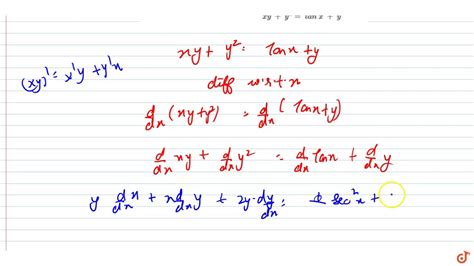 xy + y = tan x + y
(xy)' = x'y + y'x
xy + y² = tanx + y
diff w.r.t. x
d/dx (xy+y²) = d/dx (tanx+y)
d/dx xy + d/dx y² = d/dx tanx + d/dx y
y d/dx x + x d/dx y + 2y·dy/dx = sec²x +